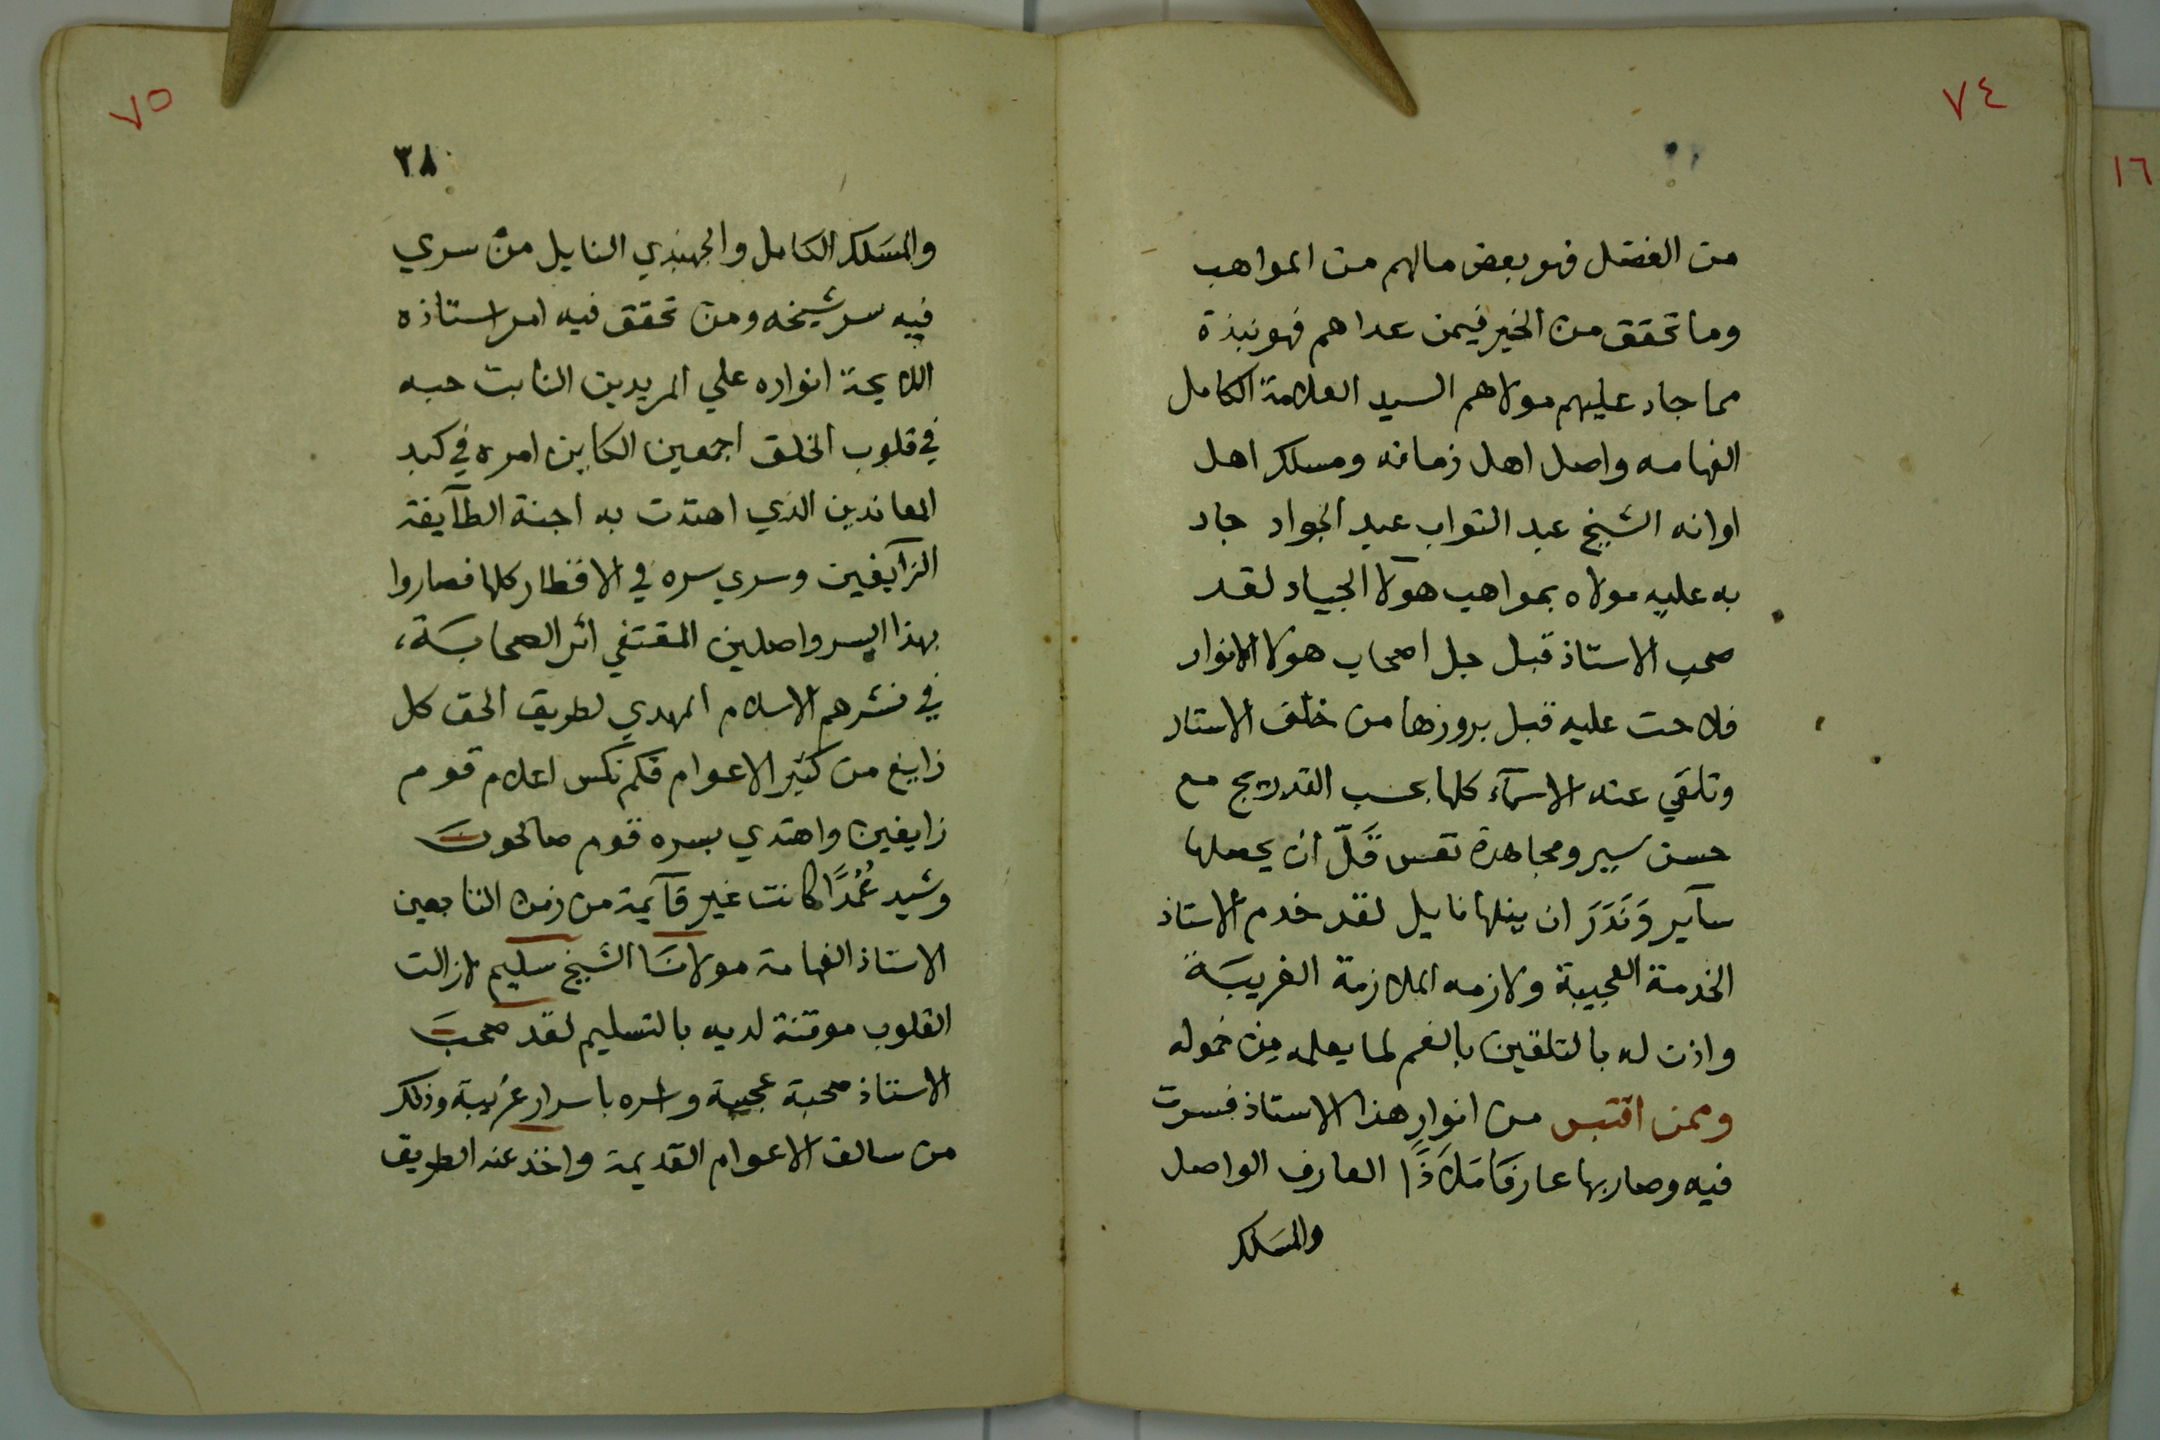 ٧٤
من الفضل فهو بعض مالهم من المواهب
وما تحقق من الخير فيمن عداهم فهو نبذة
مما جاد عليهم مولاهم السيد العلامة الكامل
الفهامه واصل اهل زمانه ومسلك اهل
اوانه الشيخ عبد التواب عبد الجواد جاد
به عليه مولاه بمواهب هولآ الجياد لقد
صحب الاستاذ قبل جل اصحاب هولا الانوار
فلاحت عليه قبل بروزها من خلف الاستار
وتلقي عنه الاسمآء كلها بحسب التدريج مع
حسن سير ومجاهدة نفس قَلّ ان يحصلها
سآير وَنَدَرَ ان ينلها نايل لقد خدم الاستاذ
الخدمة العجيبة ولازمه الملازمة الغريبَة
واذن له بالتلقين بالفم لما يعلمه مِن خموله
وممن اقتبس من انوار هذا الاستاذ فسرت
فيه وصار بها عارفَا مَلَاذًا العارف الواصل
والمسَلك
٧٥
٣٨
والمسَلك الكامل والجهبذي النايل منْ سري
فيه سر شيخه ومن تحقق فيه امر استاذه
اللايحة انواره علي المريدين الثابت حبه
في قلوب الخلق اجمعين الكاين امره في كبد
المعاندين الذي اهتدت به اجنة الطآيفة
الزآيغين وسري سره في الاقطار كلها فصاروا
بهذا السر واصلين المقتفي اثر الصحابَة،
في نشرهم الاسلام المهدي لطريق الحق كل
زايغ من كثير الاعوام فكم نكس اعلام قوم
زايغين واهتدي بسره قوم صالحونَ
وشيد عُمُدًا كانت غير قآيمة من زمن التابعين
الاستاذ الفهامة مولانَا الشيخ سليم لازالت
القلوب موقنة لديه بالتسليم لقد صحبَ
الاستاذ صحبة عجيبة واسره باسرار غريبة وذلك
من سالف الاعوام القديمة واخذ عنه الطريق
١٦